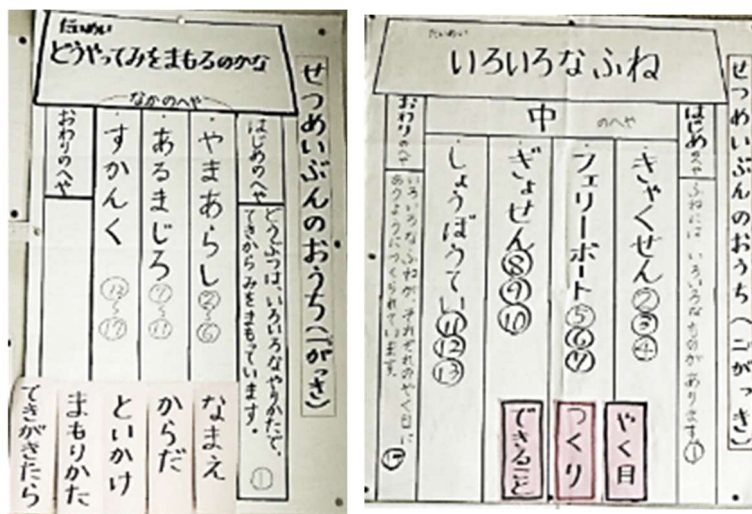 せつめいぶんのおうち(一がっき)
だいめい
どうやってみをまもるのかな
はじめのへや
どうぶつは、いろいろなやりかたで、
てきからみをまもっています。①
なかのへや
・やまあらし②～⑥
・あるまじろ⑦～⑪
・すかんく⑫～⑰
おわりのへや
なまえ
からだ
といかけ
まもりかた
てきがきたら
せつめいぶんのおうち(二がっき)
だいめい
いろいろなふね
はじめのへや
ふねには いろいろなものがあります①
中のへや
・きゃくせん②③④
・フェリーボート⑤⑥⑦
・ぎょせん⑧⑨⑩
・しょうぼうてい⑪⑫⑬
おわりのへや
いろいろなふねが、それぞれのやく目に
あうようにつくられています。⑭
やく目
つくり
できること